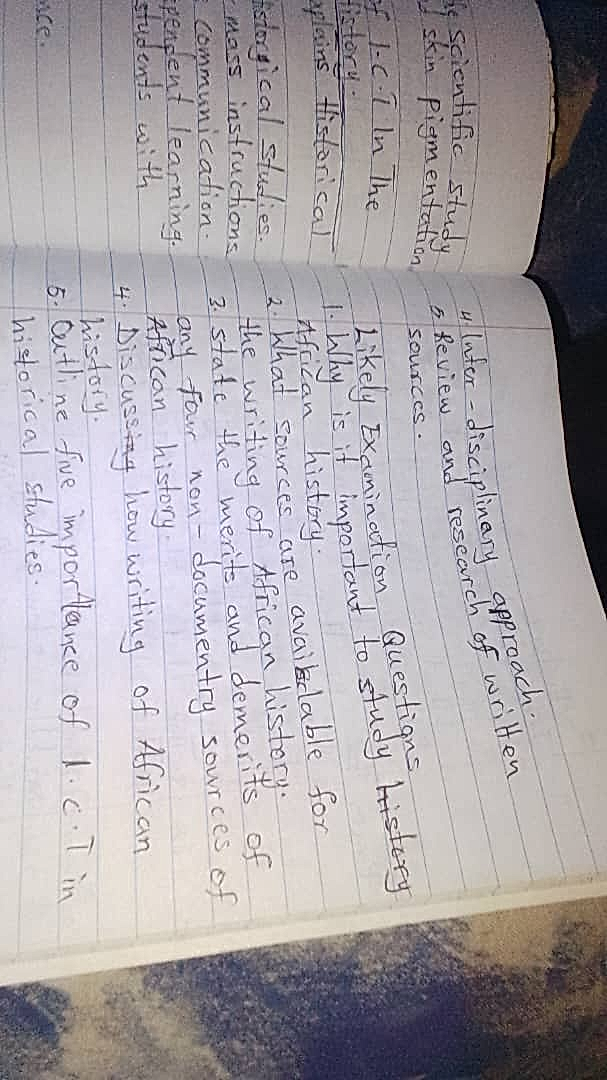 he scientific study
d skin pigmentation
of I.C.T In The
History.
xplains Historical
historgical studies.
mass instructions
communication.
pendent learning.
students with
nce.
4. Inter-disciplinary approach.
5. Review and research of written
sources.
Likely Examination Questions
1. Why is it important to study history
African history.
2. What sources are available for
the writing of African history.
3. State the merits and demerits of
any four non-documentry sources of
African history.
4. Discussing how writing of African
history.
5. Outline five importance of I.C.T in
historical studies.